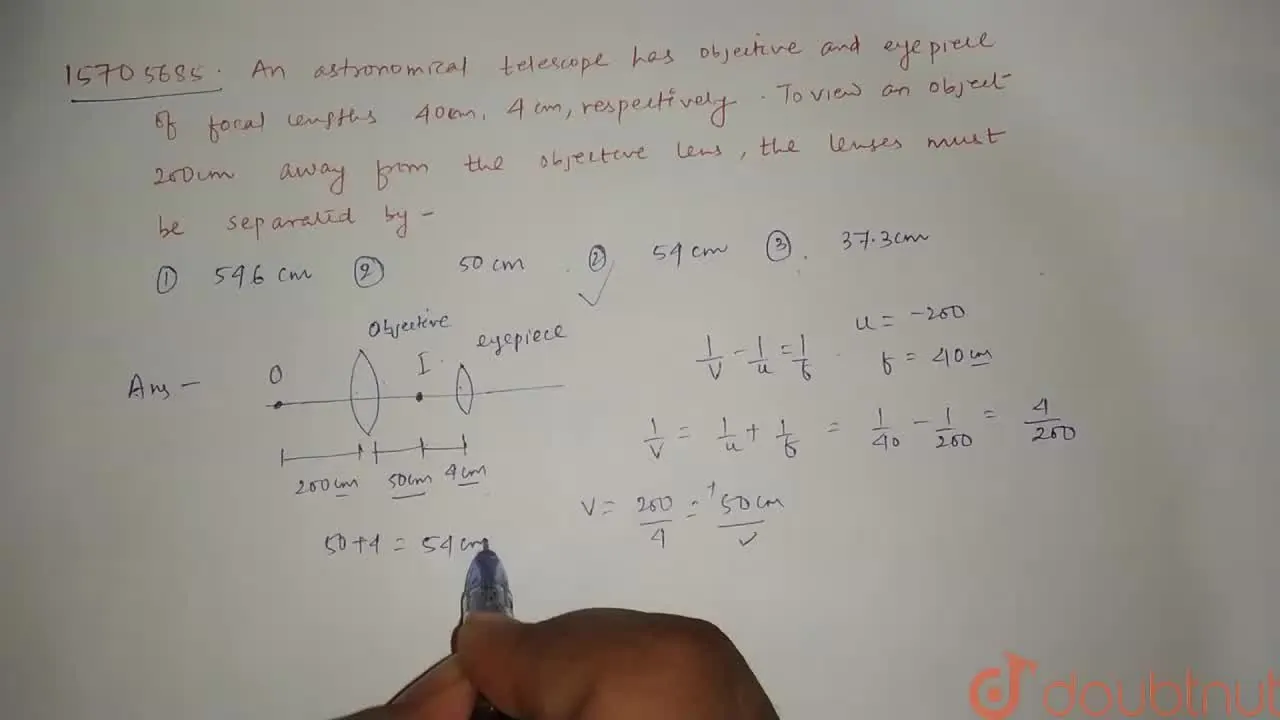 15705685. An astronomical telescope has objective and eyepiece
of focal lengths 40cm, 4cm, respectively. To view an object
200cm away from the objective lens, the lenses must
be separated by -
① 546 cm ② 50 cm ② 54 cm ③ 37.3cm
Objective
eyepiece
I.
Ans - O
200cm 50cm 4cm
50+4 = 54cm
u = -200
1/v - 1/u = 1/f f = 40cm
1/v = 1/u + 1/f = 1/40 - 1/200 = 4/200
v = 200/4 = +50cm
doubtnut